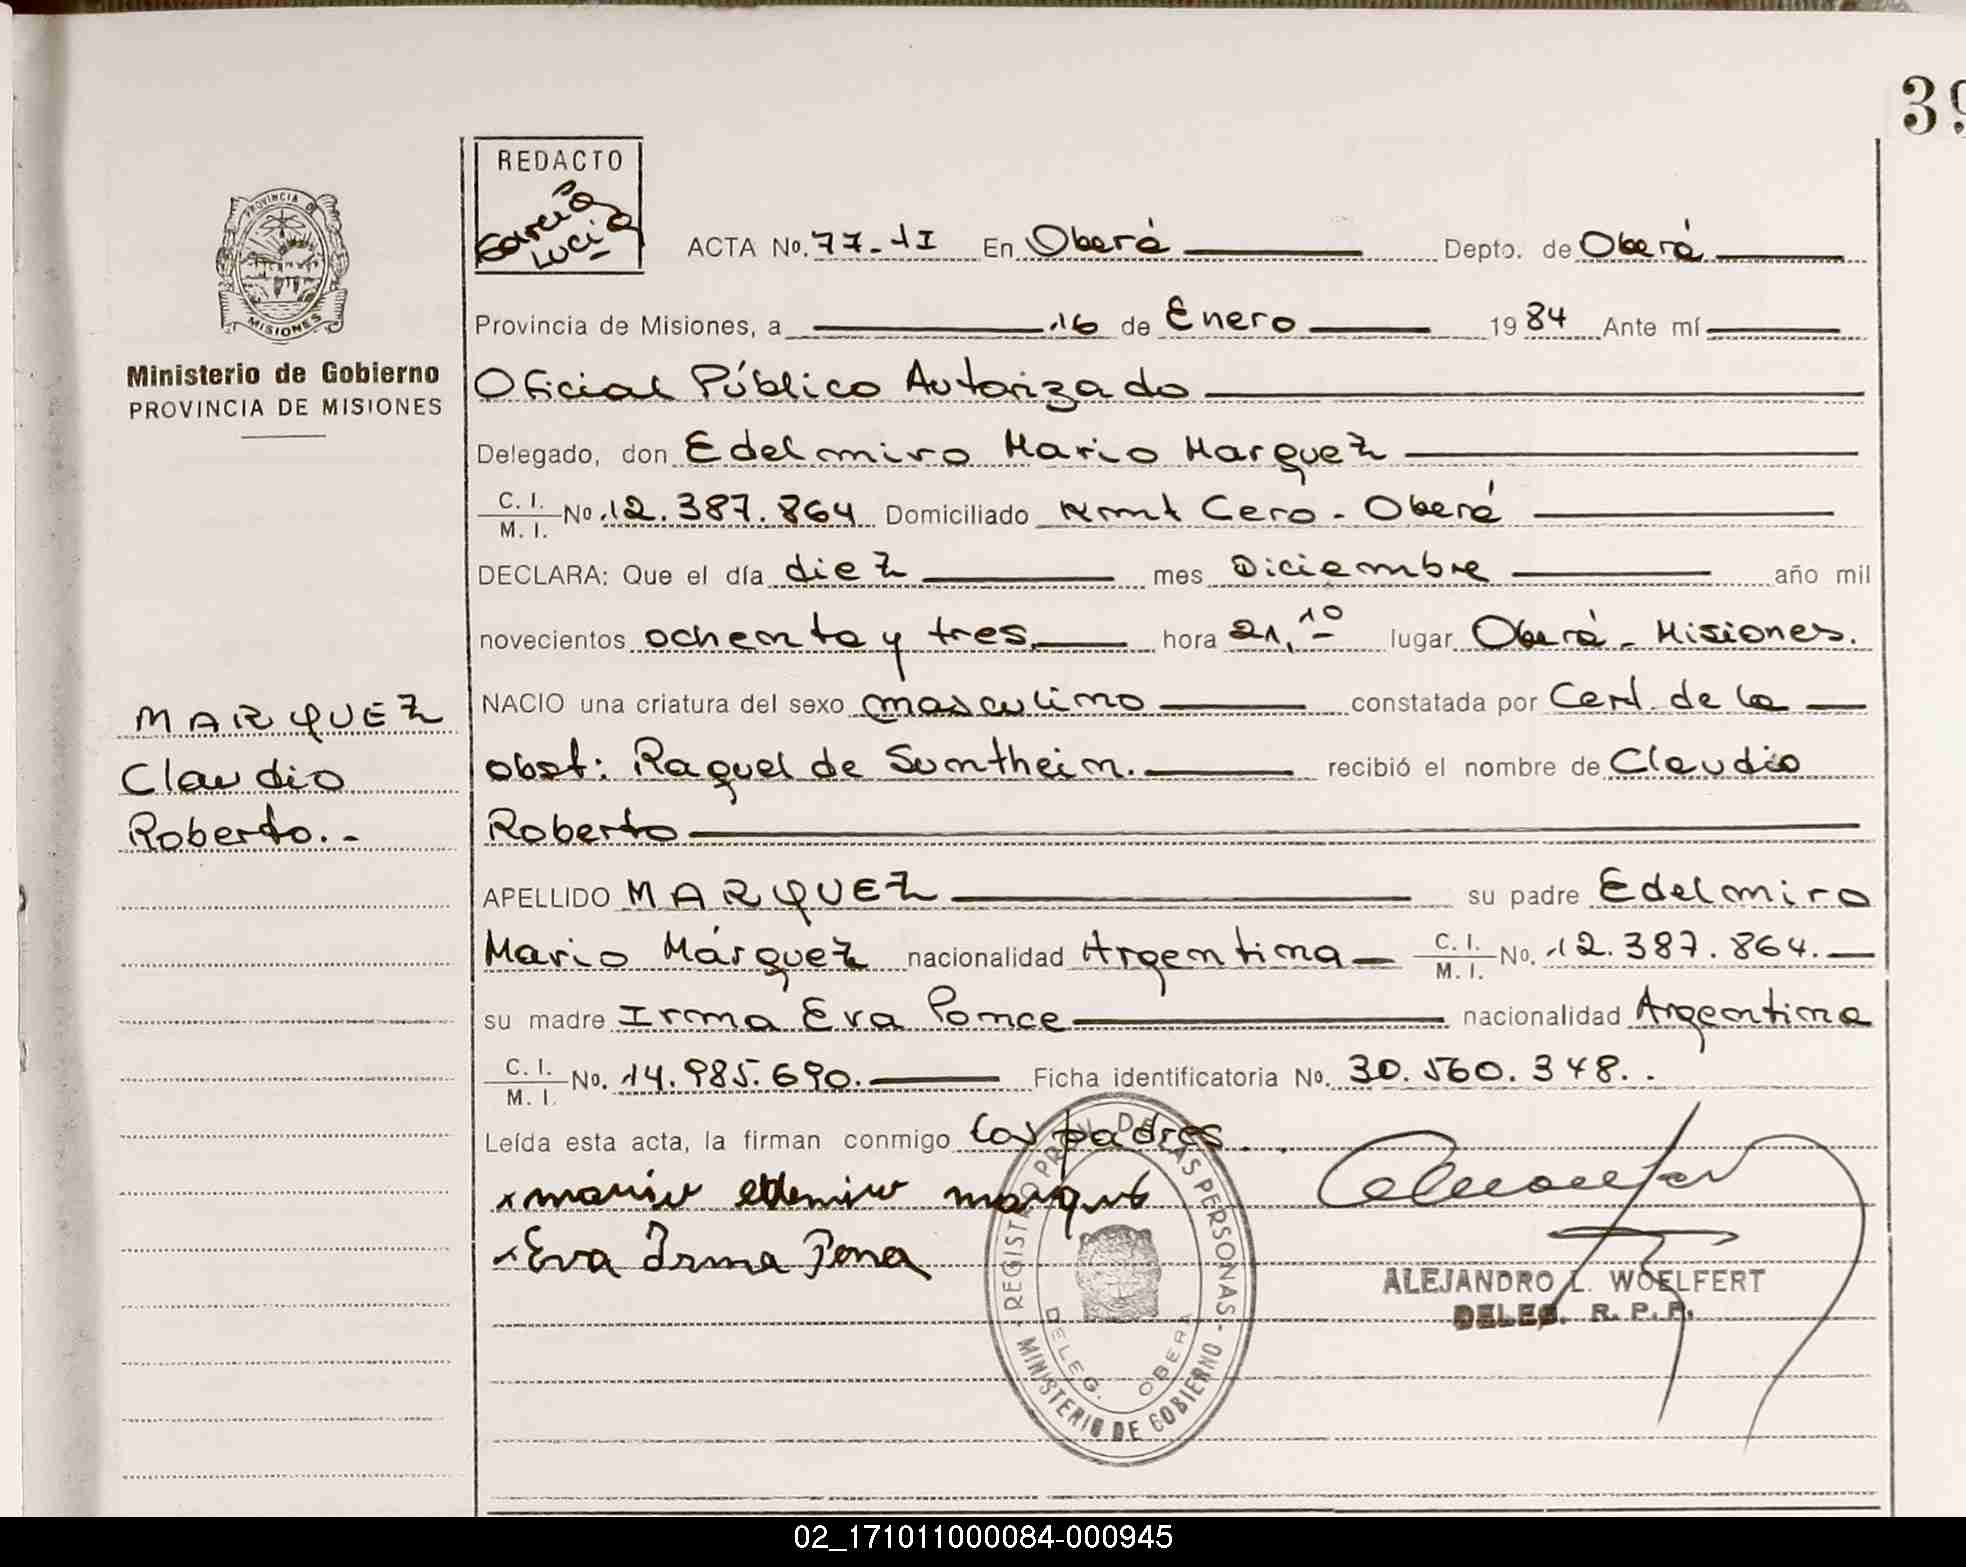 39
REDACTO
Garcia
Lucia
PROVINCIA DE
MISIONES
Ministerio de Gobierno
PROVINCIA DE MISIONES
ACTA No. 77-II En Oberá Depto. de Oberá
Provincia de Misiones, a 16 de Enero 1984 Ante mí
Oficial Público Autorizado
Delegado, don Edelmiro Mario Marquez
C. I. / M. I. No 12.387.864 Domiciliado Kmt Cero - Oberá
DECLARA: Que el día diez mes Diciembre año mil
novecientos ochenta y tres hora 21,10 lugar Oberá - Misiones.
NACIO una criatura del sexo masculino constatada por Cert. de la
obst: Raquel de Sumtheim. recibió el nombre de Claudio
Roberto
MARQUEZ
Claudio
Roberto.-
APELLIDO MARQUEZ su padre Edelmiro
Mario Márquez nacionalidad Argentina C. I. / M. I. No. 12.387.864.
su madre Irma Eva Ponce nacionalidad Argentina
C. I. / M. I. No. 14.985.690. Ficha identificatoria No. 30.560.348..
Leída esta acta, la firman conmigo los padres..
x mario edemiro marques
x Eva Irma Pona
REGISTRO PROV. DE LAS PERSONAS
MINISTERIO DE GOBIERNO
DELEG. OBERA
ALEJANDRO L. WOELFERT
DELEG. R. P. P.
02_171011000084-000945